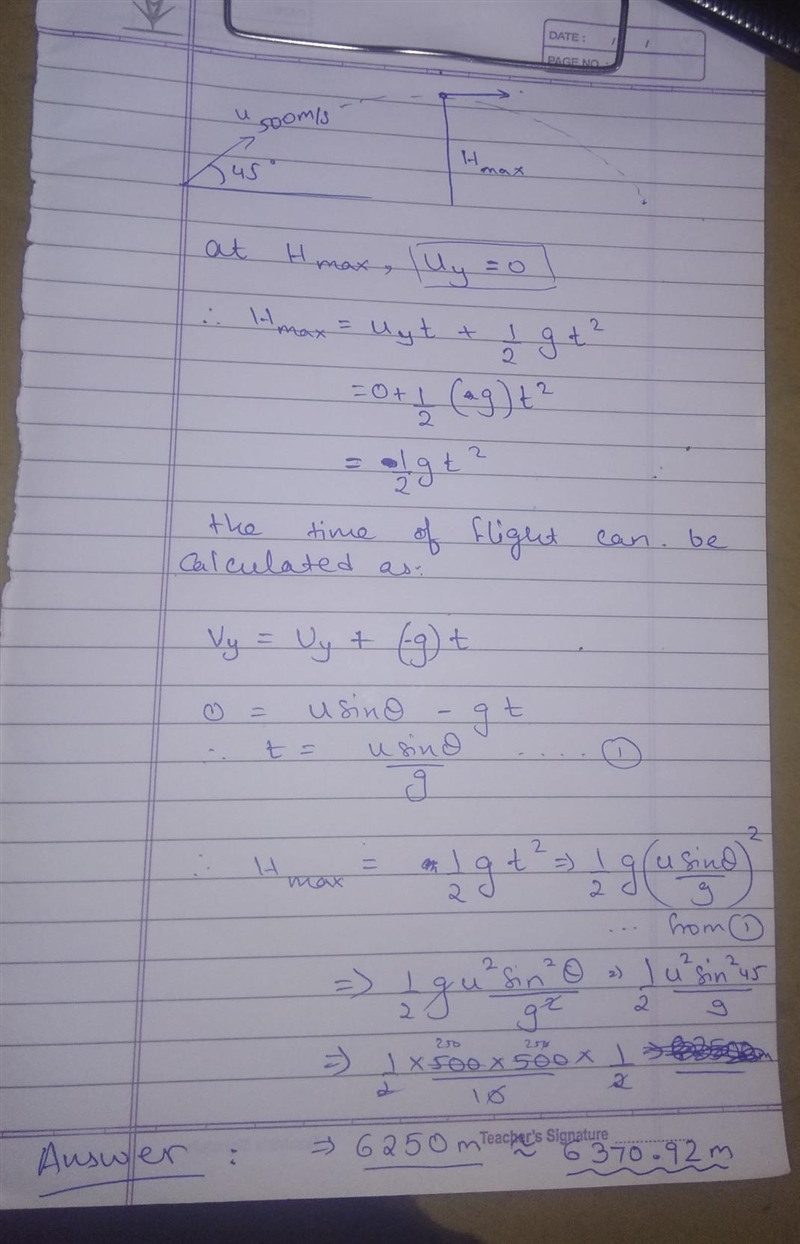 DATE: / /
PAGE NO.
u 500m/s
45°
Hmax
at Hmax, Uy = 0
∴ Hmax = Uyt + 1/2 g t²
= 0 + 1/2 (-g) t²
= 1/2 g t²
the time of flight can be
calculated as:
Vy = Uy + (-g) t
0 = u sinθ - g t
∴ t = u sinθ/g ..... ①
∴ Hmax = 1/2 g t² ⇒ 1/2 g (u sinθ/g)²
... from ①
⇒ 1/2 g u² sin²θ/g² ⇒ 1/2 u² sin²45/g
250 250
⇒ 1/2 × 500 × 500/10 × 1/2
Teacher's Signature
Answer : ⇒ 6250m ≈ 6370.92m